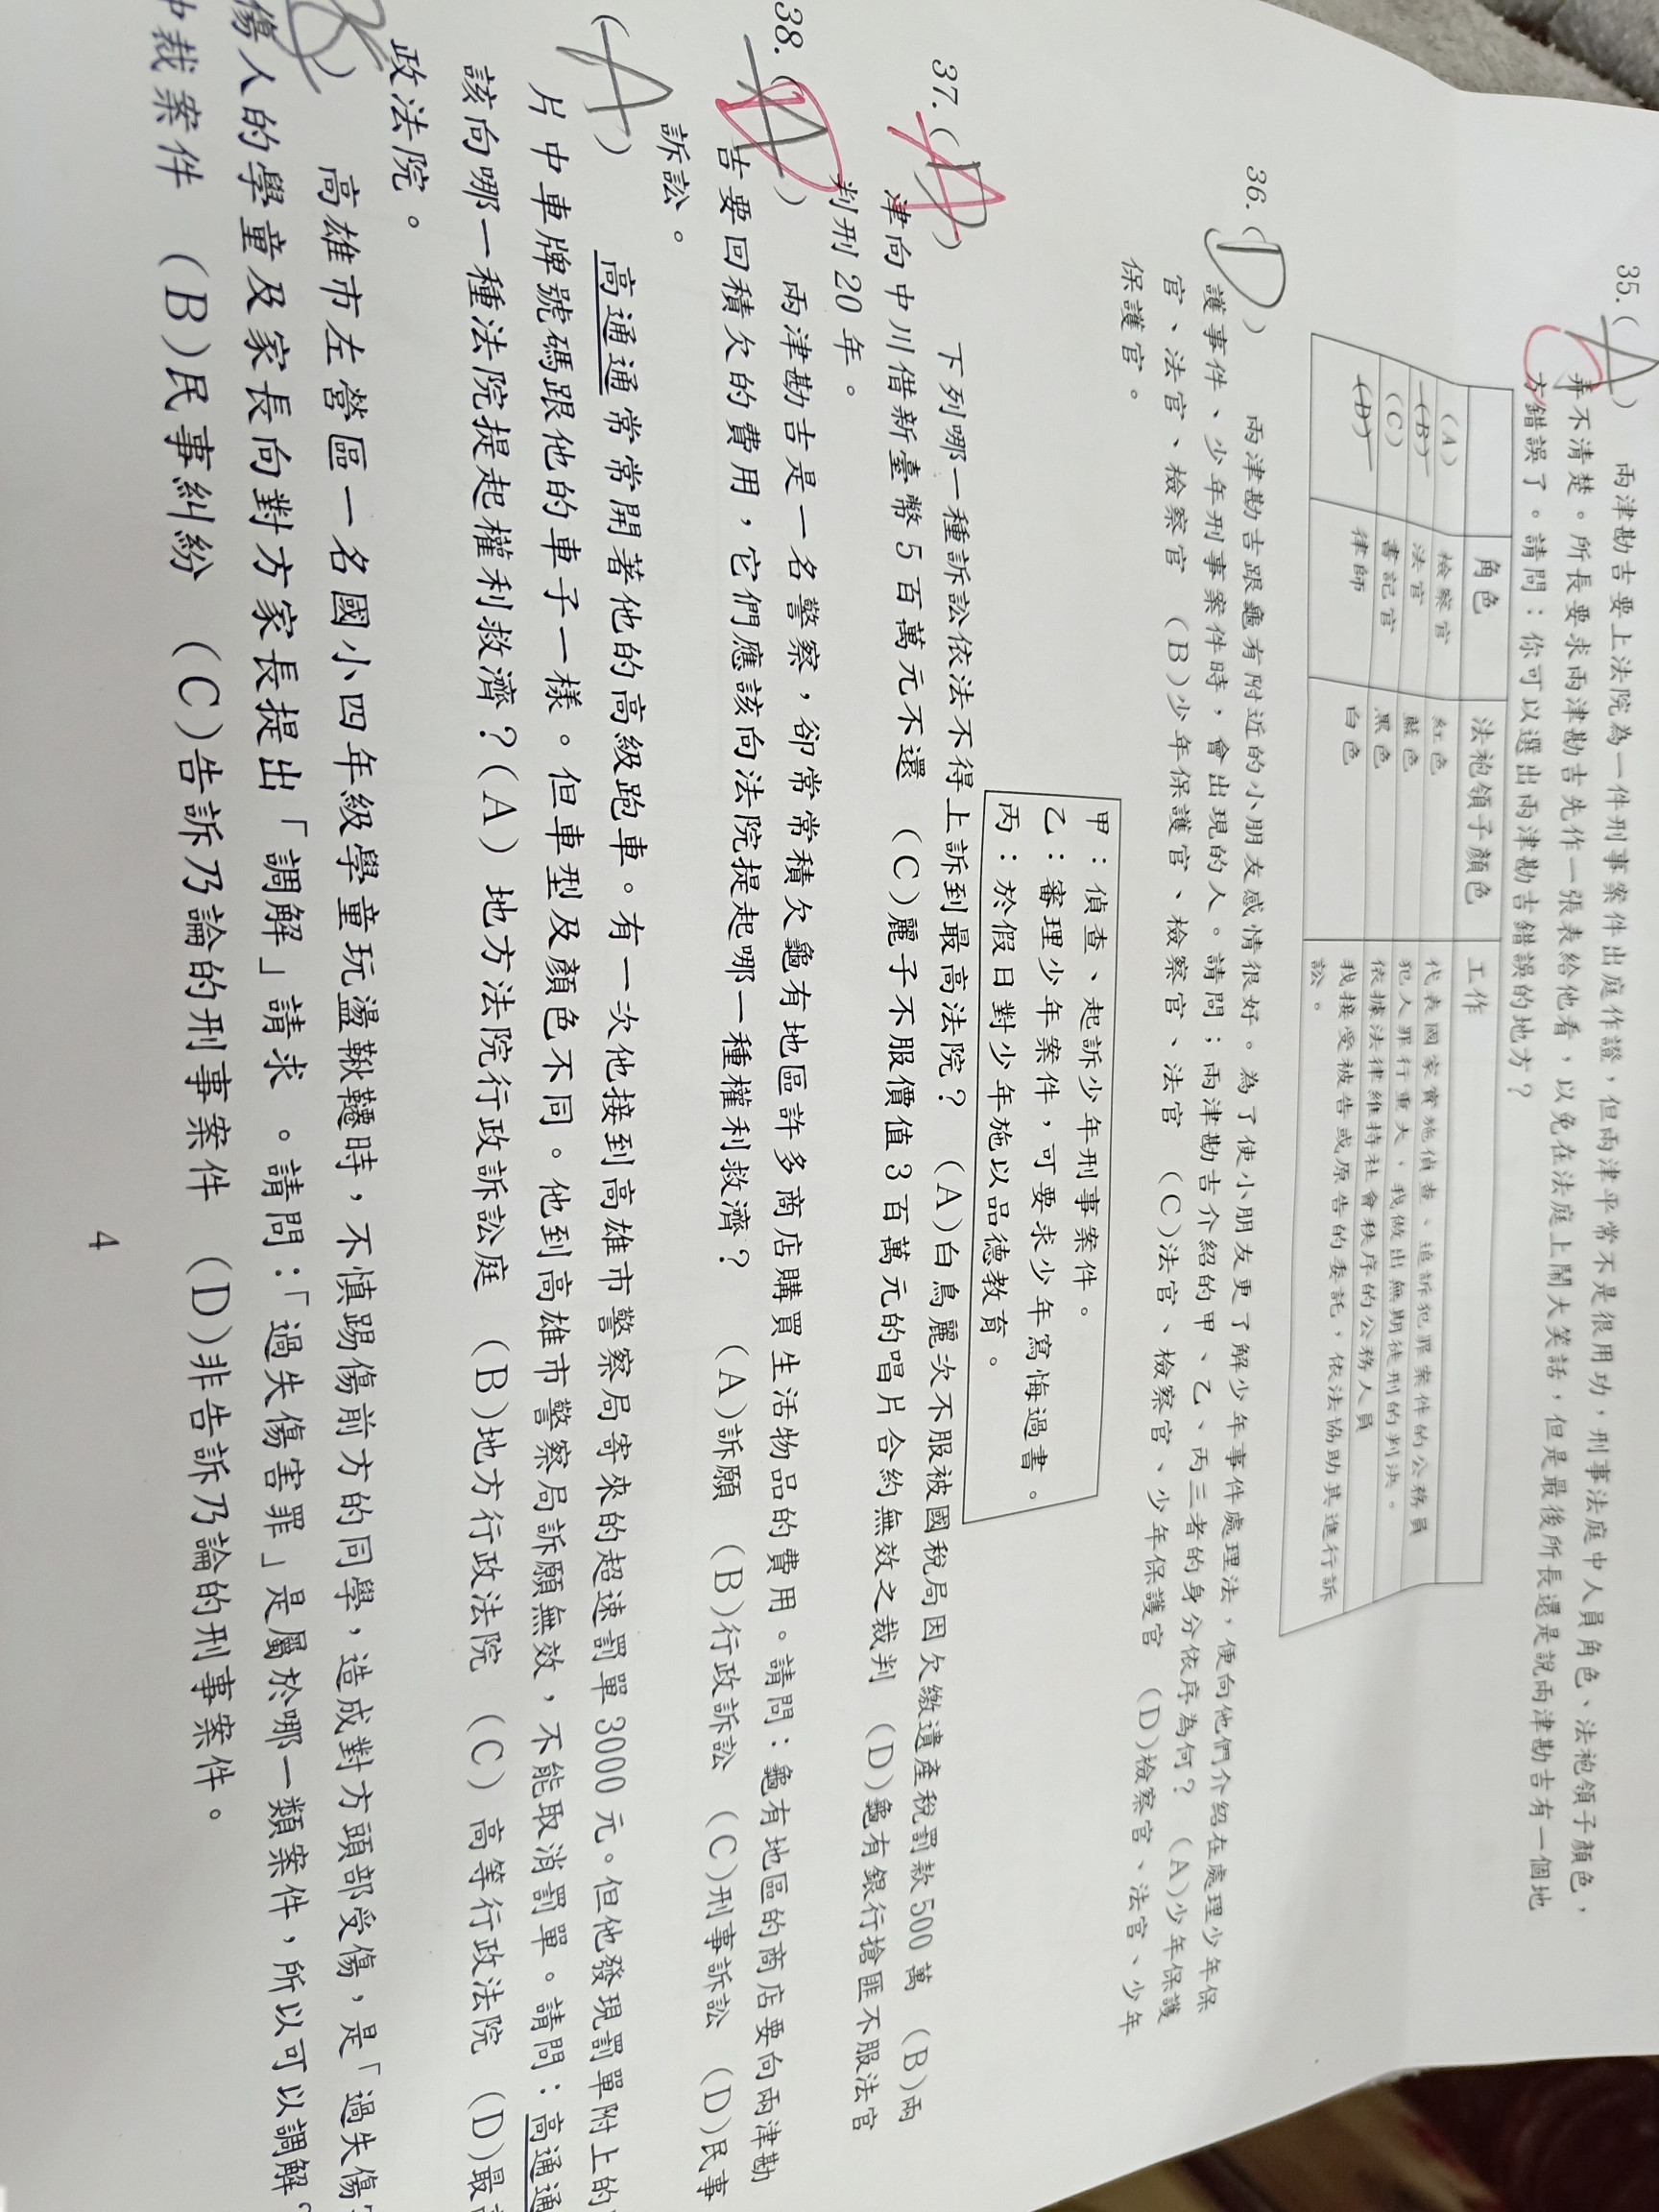 35.(A) 兩津勘吉要上法院為一件刑事案件出庭作證，但兩津平常不是很用功，刑事法庭中人員角色、法袍領子顏色，
C 弄不清楚。所長要求兩津勘吉先作一張表給他看，以免在法庭上鬧大笑話，但是最後所長還是說兩津勘吉有一個地
方錯誤了。請問：你可以選出兩津勘吉錯誤的地方？
角色 法袍領子顏色 工作
(A) 檢察官 紅色 代表國家實施偵查、追訴犯罪案件的公務員
(B) 法官 藍色 犯人罪行重大，我做出無期徒刑的判決。
(C) 書記官 黑色 依據法律維持社會秩序的公務人員
(D) 律師 白色 我接受被告或原告的委託，依法協助其進行訴
訟。
36.(D) 兩津勘吉跟龜有附近的小朋友感情很好。為了使小朋友更了解少年事件處理法，便向他們介紹在處理少年保
護事件、少年刑事案件時，會出現的人。請問；兩津勘吉介紹的甲、乙、丙三者的身分依序為何？ (A)少年保護
官、法官、檢察官 (B)少年保護官、檢察官、法官 (C)法官、檢察官、少年保護官 (D)檢察官、法官、少年
保護官。
甲：偵查、起訴少年刑事案件。
乙：審理少年案件，可要求少年寫悔過書。
丙：於假日對少年施以品德教育。
37.(A) 下列哪一種訴訟依法不得上訴到最高法院？ (A)白鳥麗次不服被國稅局因欠繳遺產稅罰款500萬 (B)兩
津向中川借新臺幣5百萬元不還 (C)麗子不服價值3百萬元的唱片合約無效之裁判 (D)龜有銀行搶匪不服法官
判刑20年。
38.(D) 兩津勘吉是一名警察，卻常常積欠龜有地區許多商店購買生活物品的費用。請問：龜有地區的商店要向兩津勘
吉要回積欠的費用，它們應該向法院提起哪一種權利救濟？ (A)訴願 (B)行政訴訟 (C)刑事訴訟 (D)民事
訴訟。
(A) 高通通常常開著他的高級跑車。有一次他接到高雄市警察局寄來的超速罰單3000元。但他發現罰單附上的
片中車牌號碼跟他的車子一樣。但車型及顏色不同。他到高雄市警察局訴願無效，不能取消罰單。請問：高通通
該向哪一種法院提起權利救濟？(A) 地方法院行政訴訟庭 (B)地方行政法院 (C) 高等行政法院 (D)最
政法院。
) 高雄市左營區一名國小四年級學童玩盪鞦韆時，不慎踢傷前方的同學，造成對方頭部受傷，是「過失傷
傷人的學童及家長向對方家長提出「調解」請求 。請問：「過失傷害罪」是屬於哪一類案件，所以可以調解？
裁案件 (B)民事糾紛 (C)告訴乃論的刑事案件 (D)非告訴乃論的刑事案件。
4